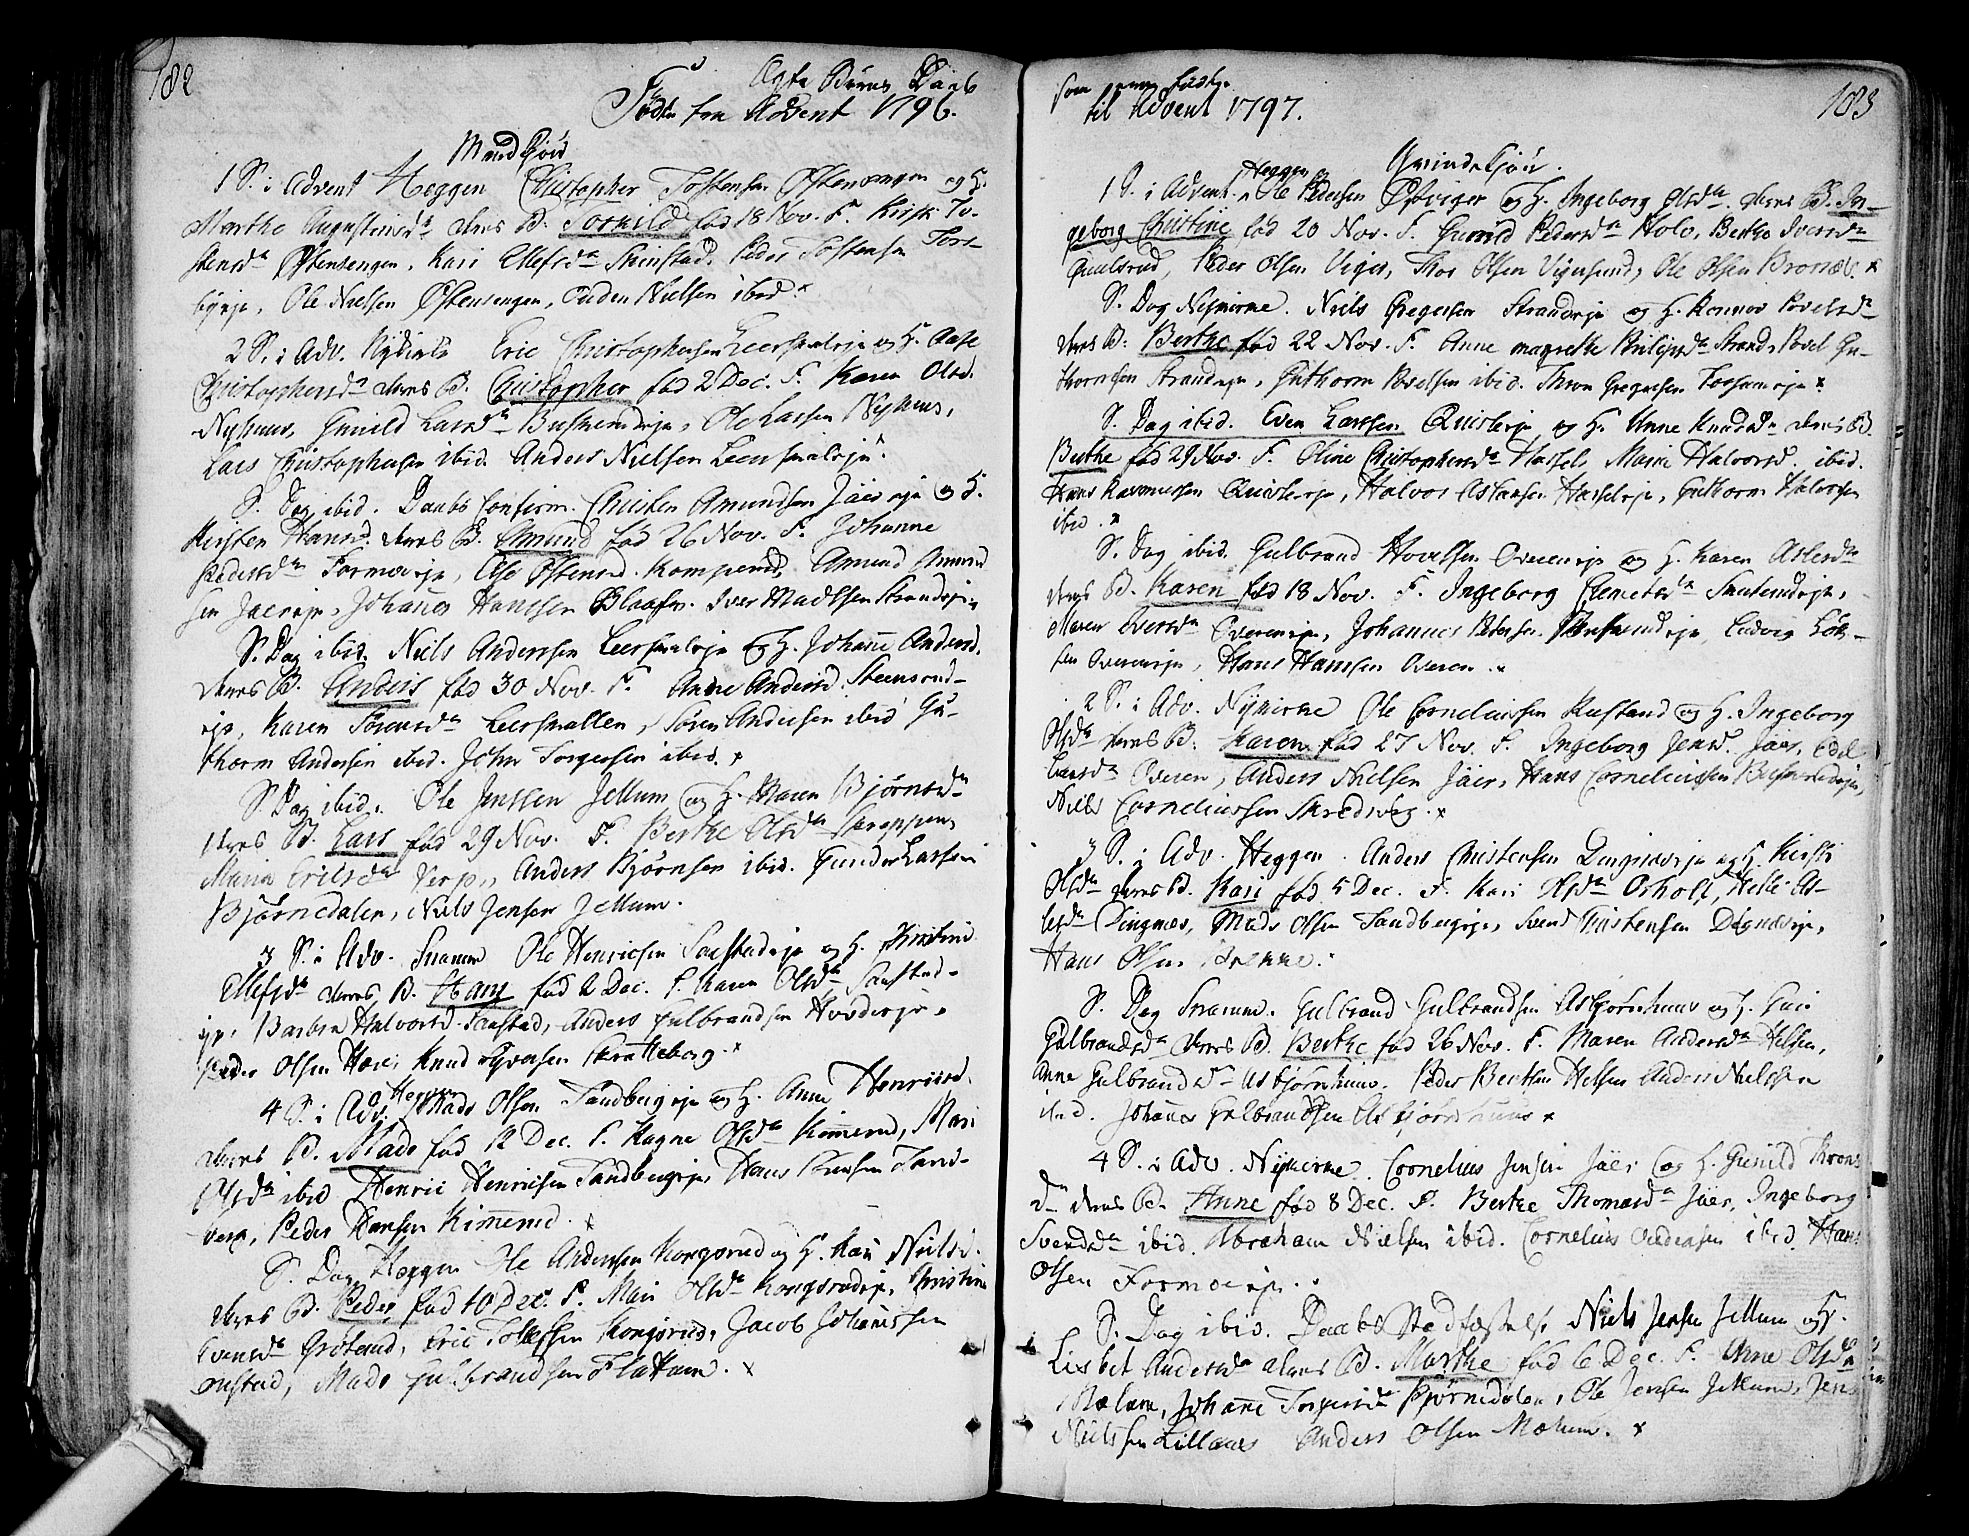 182
Ægte Børns Daab
Fødte fra Advent 1796.
Mandkjön
1 S. i Advent Heggen Christopher Tostensen Østensengen og H.
Marthe Augustinsd. deres B. Torkild fød 18 Nov. F. Kirsti To-
stensd. Østensengen, Kari Ellefsd. Skinstad, Peder Tostensen
Ole Nielsen Østensengen, Auden Nielsen ibid.
2 S. i Adv. Eric Christophersen Leersmaleje og H. Aase
Christophersd. deres B. Christopher fød 2 Dec. F. Karen Olsd.
Nyhuus, Gunild Larsd. Buskerudeje, Ole Larsen Nyhuus,
Lars Christophersen ibid. Anders Nielsen Leersmaleje.
S. Dag ibid. Daabs Confirm. Christen Amundsen Jäereje og H.
Kirsten Hansd. deres B. Amund fød 26 Nov. F. Johanne
Pedersd. Formoeje, Østensd. Komperud, Amund Amund
sen Jäereje, Johannes Hanssen Blaafar. Iver Madsen Strandeje
S. Dag ibid. Niels Anderssen Leersmaleje og H. Johane Andersd.
deres B. Anders fød 30 Nov. F. Anne Andersd. Steensrud-
eje, Karen Sørensd. Leersmallen, Søren Andersen ibid Gu-
thorm Andersen ibid. John Torgersen ibid.
S. Dag ibid. Ole Jenssen Jellum og H. Maren Bjørnsd.
deres B. Lars fød 29 Nov. F. Berthe Olsd. Skreppen,
Maria Erichsd. Verp, Anders Bjørnsen ibid. Gunder Larssen
Bjørnedalen, Niels Jensen Jellum.
3 S. i Adv. Snarum Ole Henricsen Saastadeje og H. Kirstine
Ellefsd. deres B. Hans fød 2 Dec. F. Karen Olsd. Saastad-
eje, Barbra Halvorsd. Saastad, Anders Gulbrandsen Hovdeeje,
Peder Olsen Hære, Knud Syversen Skratteborg.
4 S. i Adv. Heggen Mads Olsen Sandbergeje og H. Anne Henricsd.
deres B. Mads fød 12 Dec. F. Ragne Olsd. Kimerud, Mari
Olsd. ibid Henric Henricsen Sandbergeje, Hans Sand-
Peder Hansen Kimerud.
S. Dag Heggen Ole Andersen Kongsrud og H. Kari Nielsd.
deres B. Peder fød 10 Dec. F. Mari Olsd. Kongsrudeje, Christine
Svensd. Grøtaud, Eric Tollefsen Kongsrud, Jacob Johannissen
Mads Gulbrandsen Flattum.
som ere fødte
til Advent 1797.
183
Qvindekjön.
1 S. i Advent Heggen Ole Pedersen Østviger og H. Ingeborg Olsd. deres B. In-
geborg Christine fød 20 Nov. F. Gunild Pedersd. Holv, Berthe Iversd.
Peder Olsen Viger, Thor Olsen Vigersund, Ole Olsen
S. Dag Nykirke. Niels Gregersen Strandeje og H. Rønnov Povelsd.
deres B. Berthe fød 22 Nov. F. Anne Margrethe Philipsd. Strand, Povel Gu-
thormsen Strandeje, Guthorm Povelsen ibid. Thron Gregersen Fossumeje
S. Dag ibid. Even Larssen Quisteje og H. Anne Knudsd. deres B.
Berthe fød 29 Nov. F. Oline Christophersd. Hassel, Marie Halvorsd. ibid.
Hans Rasmussen Quisteje, Halvor Aslaksen Hasseleje, Guthorm Halvorsen
ibid.
S. Dag ibid. Gulbrand Hovelssen Overeneje og H. Karen Aslesd.
deres B. Karen fød 18 Nov. F. Ingeborg Clemetsd. Skuterudeje,
Maren Eversd. Overeneje, Johannes Pedersen Ludvig
sen Overeneje, Hans Hanssen Overen.
2 S. i Adv. Nykirke Ole Corneliussen Rustand og H. Ingeborg
Olsd. deres B. Karen fød 27 Nov. F. Ingeborg Jensd. Jäer, Edel
Larsd. Overen, Anders Nielsen Jäer, Hans Corneliussen Buskerudeje,
Niels Corneliussen Skredsvig.
3 S. i Adv. Heggen. Anders Christensen Dingnæseje og H. Kirsti
Olsd. deres B. Kari fød 5 Dec. F. Kari Olsd. Orholt, Helle As-
lesd. Dingnæs, Mads Olsen Sandbergeje, Svend Christensen Dignæseje,
Hans Olsen Brekke.
S. Dag Snarum. Gulbrand Gulbrandsen Asbjørnhuus og H. Guri
Gulbrandsd. deres B. Berthe fød 26 Nov. F. Maren Andersd. Helsen,
Anne Gulbrandsd. Asbjørnhuus. Peder Berthsen Helsen Anders Nielssen
ibid. Johannes Gulbrandsen Asbjørnhuus
4 S. i Adv. Nykirke. Cornelius Jensen Jäer og H. Gunild Throns
d. deres B. Anne fød 8 Dec. F. Berthe Thomasd. Jäer, Ingeborg
Svendsd. ibid. Abraham Nielsen ibid. Cornelius Andersen ibid. Hans
Olsen Formoeje.
S. Dag ibid. Daabs Stadfæstelse Niels Jensen Jellum og H.
Lisbet Andersd. deres B. Marthe fød 6 Dec. F. Anne Olsd.
Mælum, Johanne Torgersd. Bjørnedalen, Ole Jensen Jellum, Jens
Nielssen Lillaaes Anders Olsen Mælum.